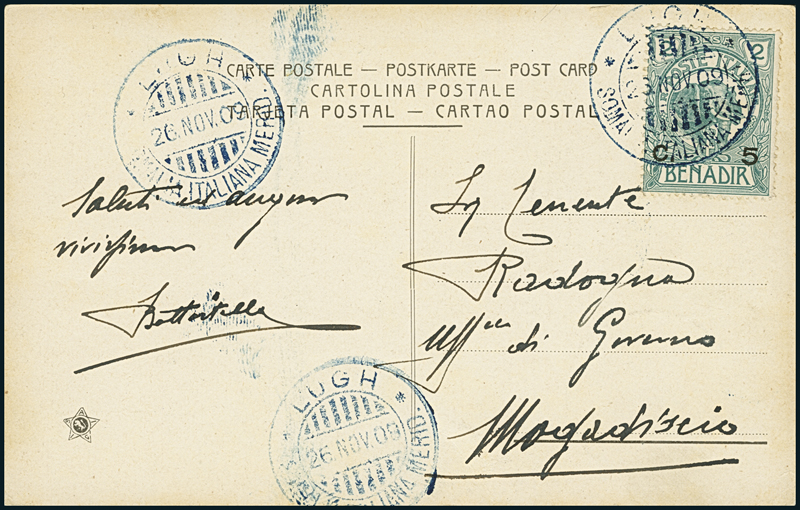 CARTE POSTALE — POSTKARTE — POST CARD
CARTOLINA POSTALE
TARJETA POSTAL — CARTAO POSTAL
* LUGH *
26 NOV. 09
SOMALIA ITALIANA MERID.
* LUGH *
NOV. 09
SOMALIA ITALIANA MERID.
2
C. 5
BENADIR
Saluti ed auguri
vivissimi
Tenente
Radogna
Uff.le di Governo
Mogadiscio
* LUGH *
26 NOV. 09
ITALIANA MERID.